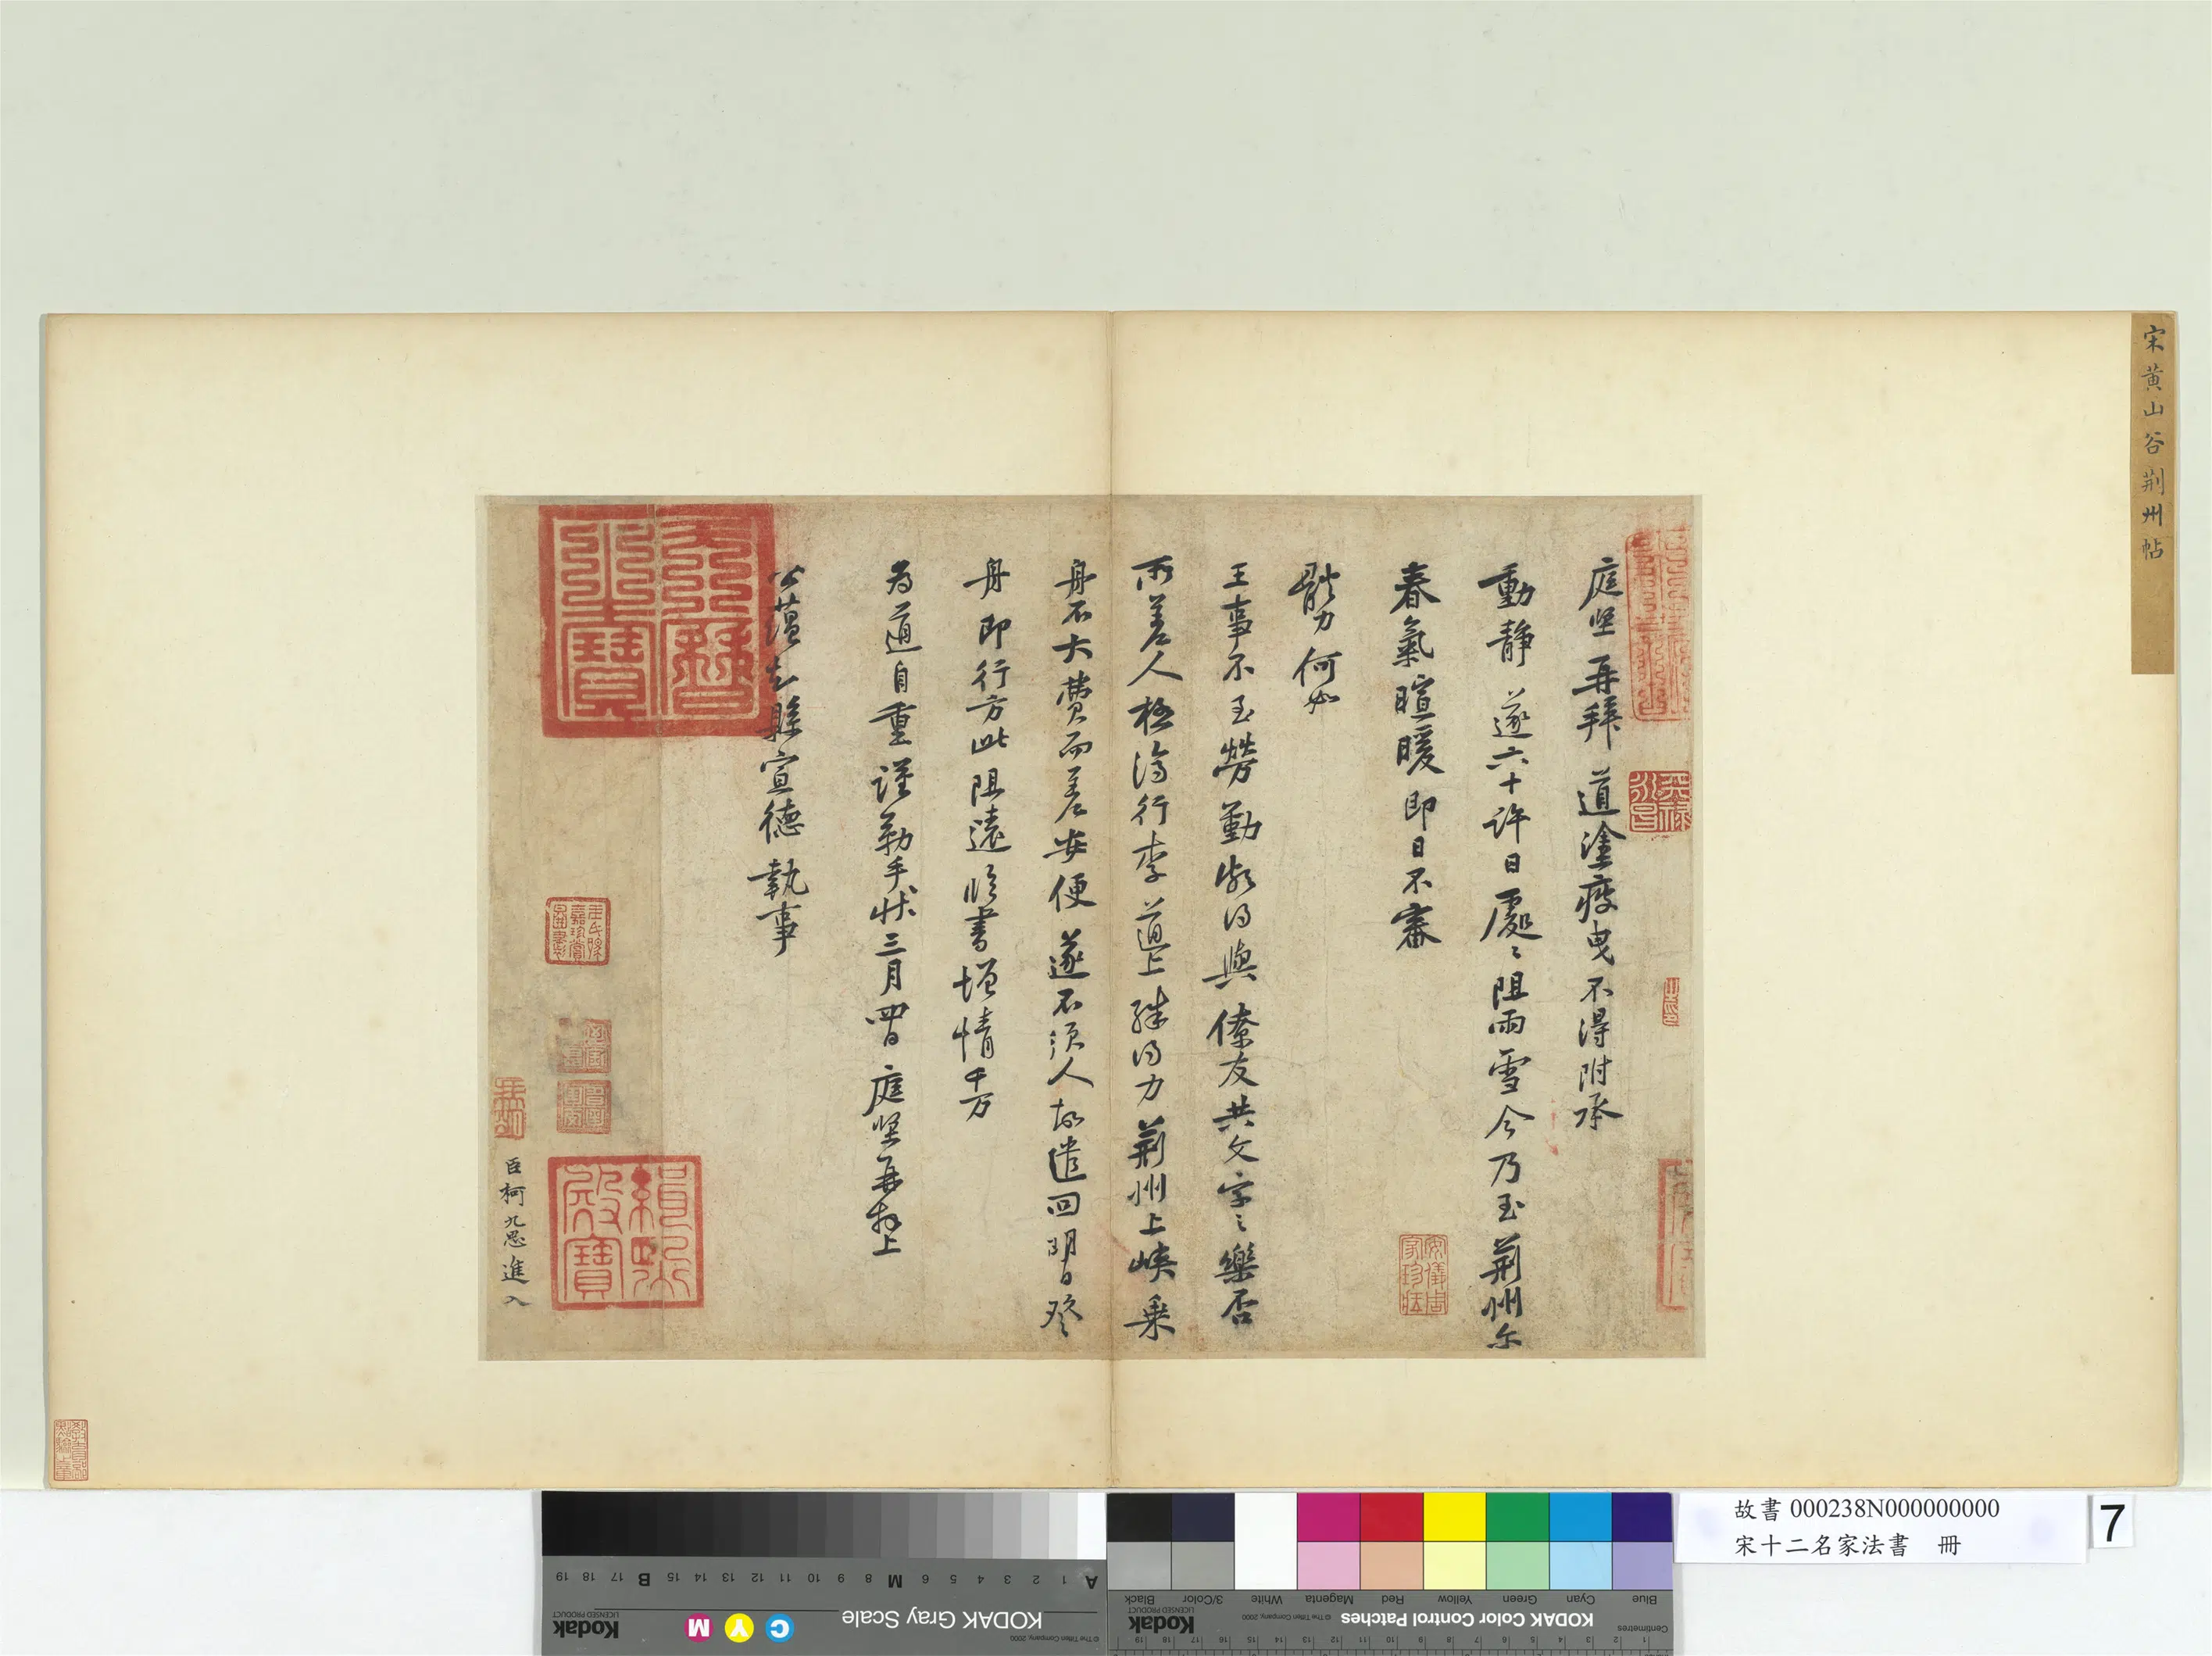 宋黄山谷荆州帖
庭堅再拜道塗疲曳不得附承
動靜遂六十許日處〻阻雨雪今乃至荆州尔
春氣暄暖即日不審
體力何如
王事不至勞勤頗得與僚友共文字之樂否
所差人極濟行李道上殊得力荆州上峽乘
舟不大費而差安便遂不須人故遣回明日登
舟即行方此阻遠臨書增情千万
為道自重謹勒手狀三月四日庭堅再拜上
公藴知縣宣德執事
臣柯九思進入
天曆之寶
緝熙殿寶
安儀周家珍藏
故書 000238N000000000
宋十二名家法書 冊
7
KODAK Gray Scale
Kodak
LICENSED PRODUCT
C Y M
A 1 2 3 4 5 6 M 8 9 10 11 12 13 14 15 B 17 18 19
© The Tiffen Company, 2000
KODAK Color Control Patches
Kodak
LICENSED PRODUCT
© The Tiffen Company, 2000
Blue Cyan Green Yellow Red Magenta White 3/Color Black
Centimetres